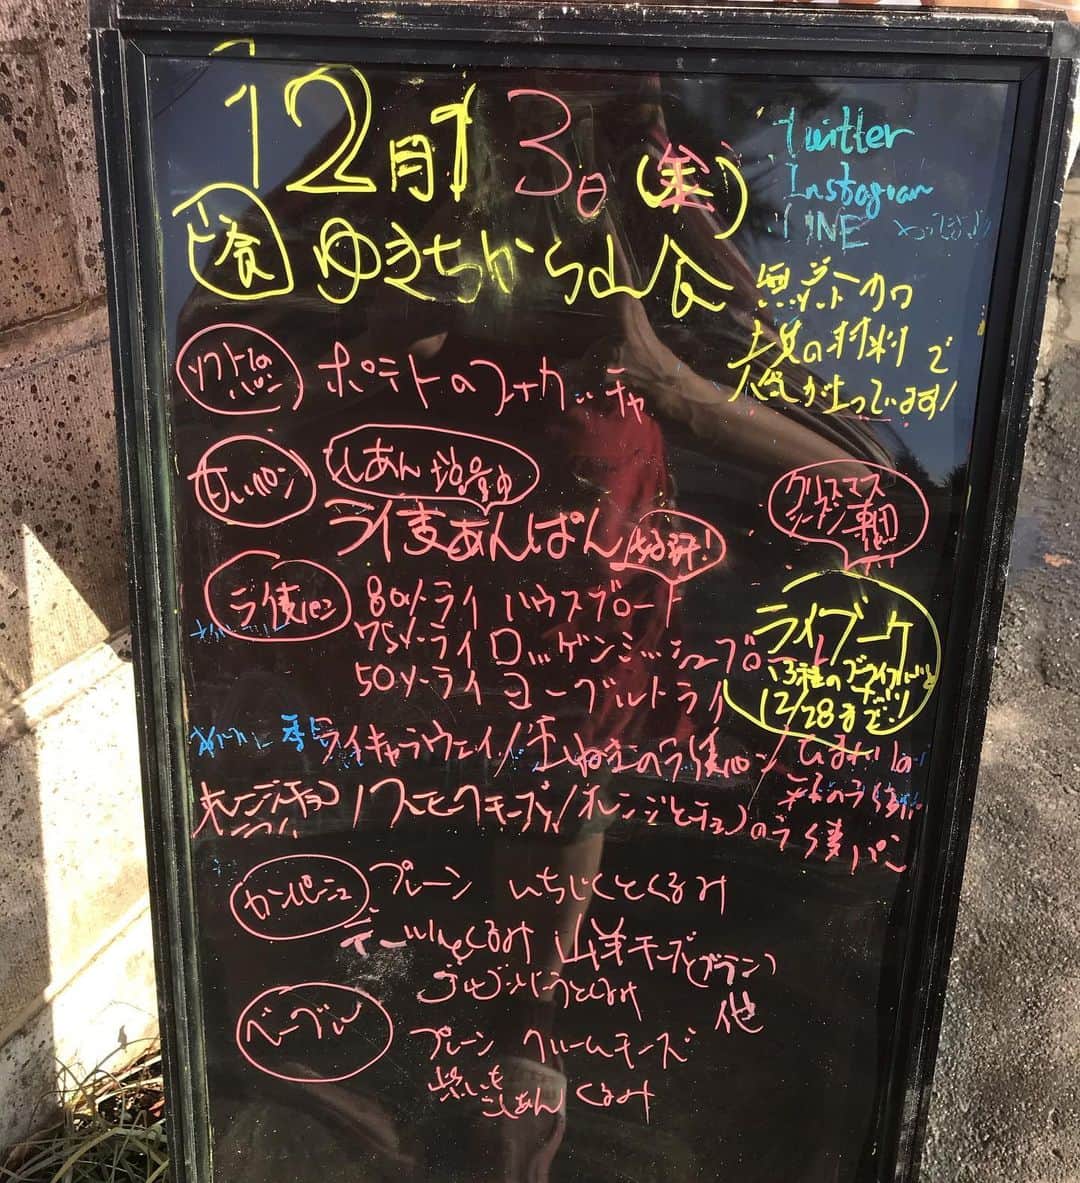 12月 3日(金)
Twitter
Instagram
LINE
ゆきちから山食
の材料で
人気が上っています!
ソフトな
パン
ポテトのフォカッチャ
甘いパン
こしあん 増量中
ライ麦あんぱん
クリスマス
シーズン
ライ麦パン
80%ライ ハウスブロート
75%ライ ロッゲンミッシュブロート
50%ライ ヨーグルトライ
ライブーケ
3種の
12/28まで!
ライキャラウェイ/玉ねぎのライ麦パン/
のライ麦パン
/スモークチーズ/オレンジとチョコのライ麦パン
カンパーニュ
プレーン いちじくとくるみ
くるみ 山羊チーズ(ブラン)
ゴルゴンゾーラとくるみ
他
ベーグル
プレーン クリームチーズ
紫いも
こしあん くるみ